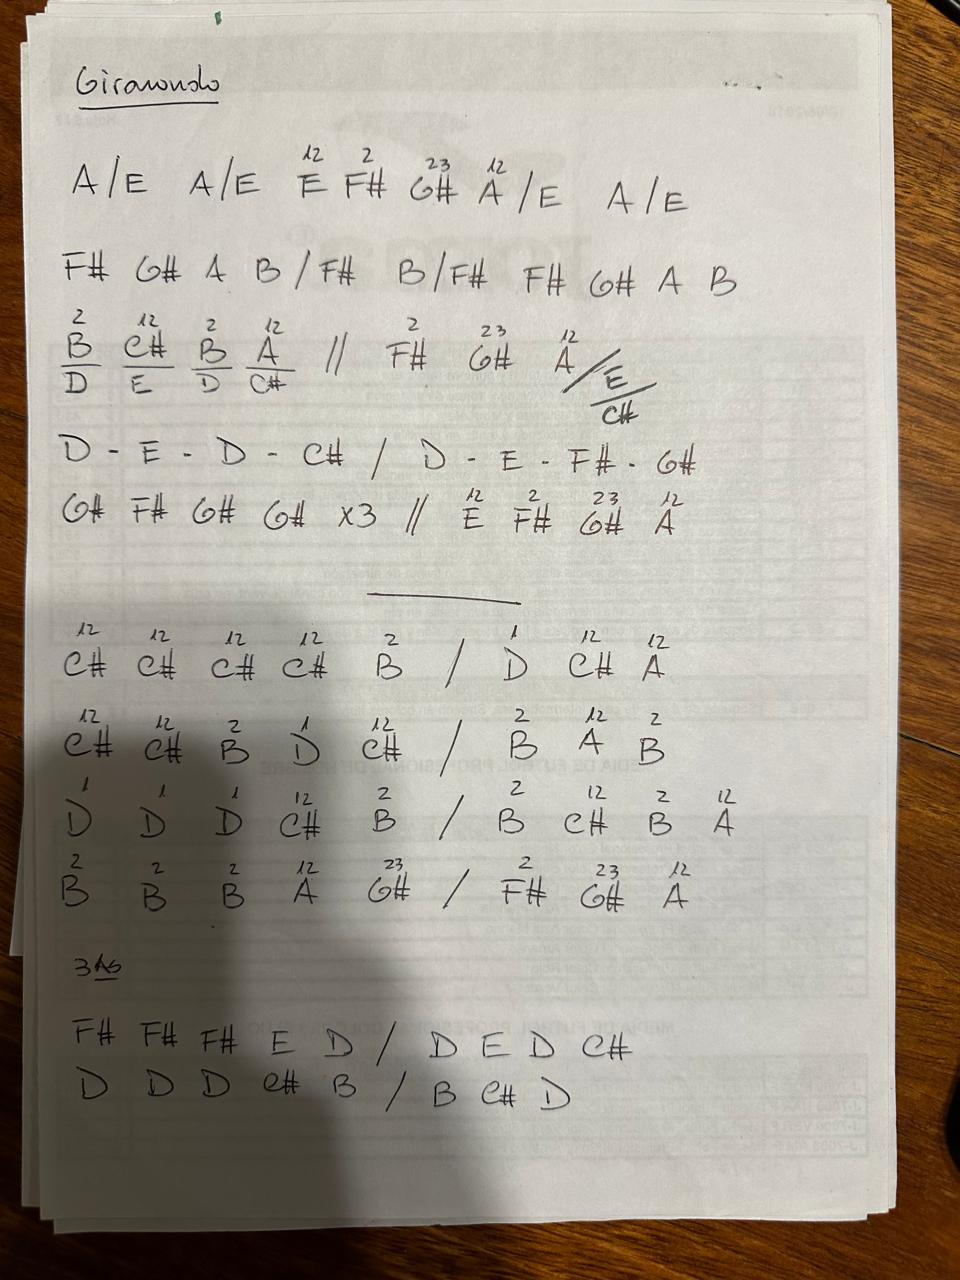 Girarondo
A/E A/E 12 E 2 F# 23 G# 12 A/E A/E
F# G# A B/F# B/F# F# G# A B
2 B/D 12 C#/E 2 B/D 12 A/C# // 2 F# 23 G# 12 A/E/C#
D - E - D - C# / D - E - F# - G#
G# F# G# G# x3 // 12 E 2 F# 23 G# 12 A
12 C# 12 C# 12 C# 12 C# 2 B / 1 D 12 C# 12 A
12 C# 12 C# 2 B 1 D 12 C# / 2 B 12 A 2 B
1 D 1 D 1 D 12 C# 2 B / 2 B 12 C# 2 B 12 A
2 B 2 B 2 B 12 A 23 G# / 2 F# 23 G# 12 A
3as
F# F# F# E D / D E D C#
D D D C# B / B C# D